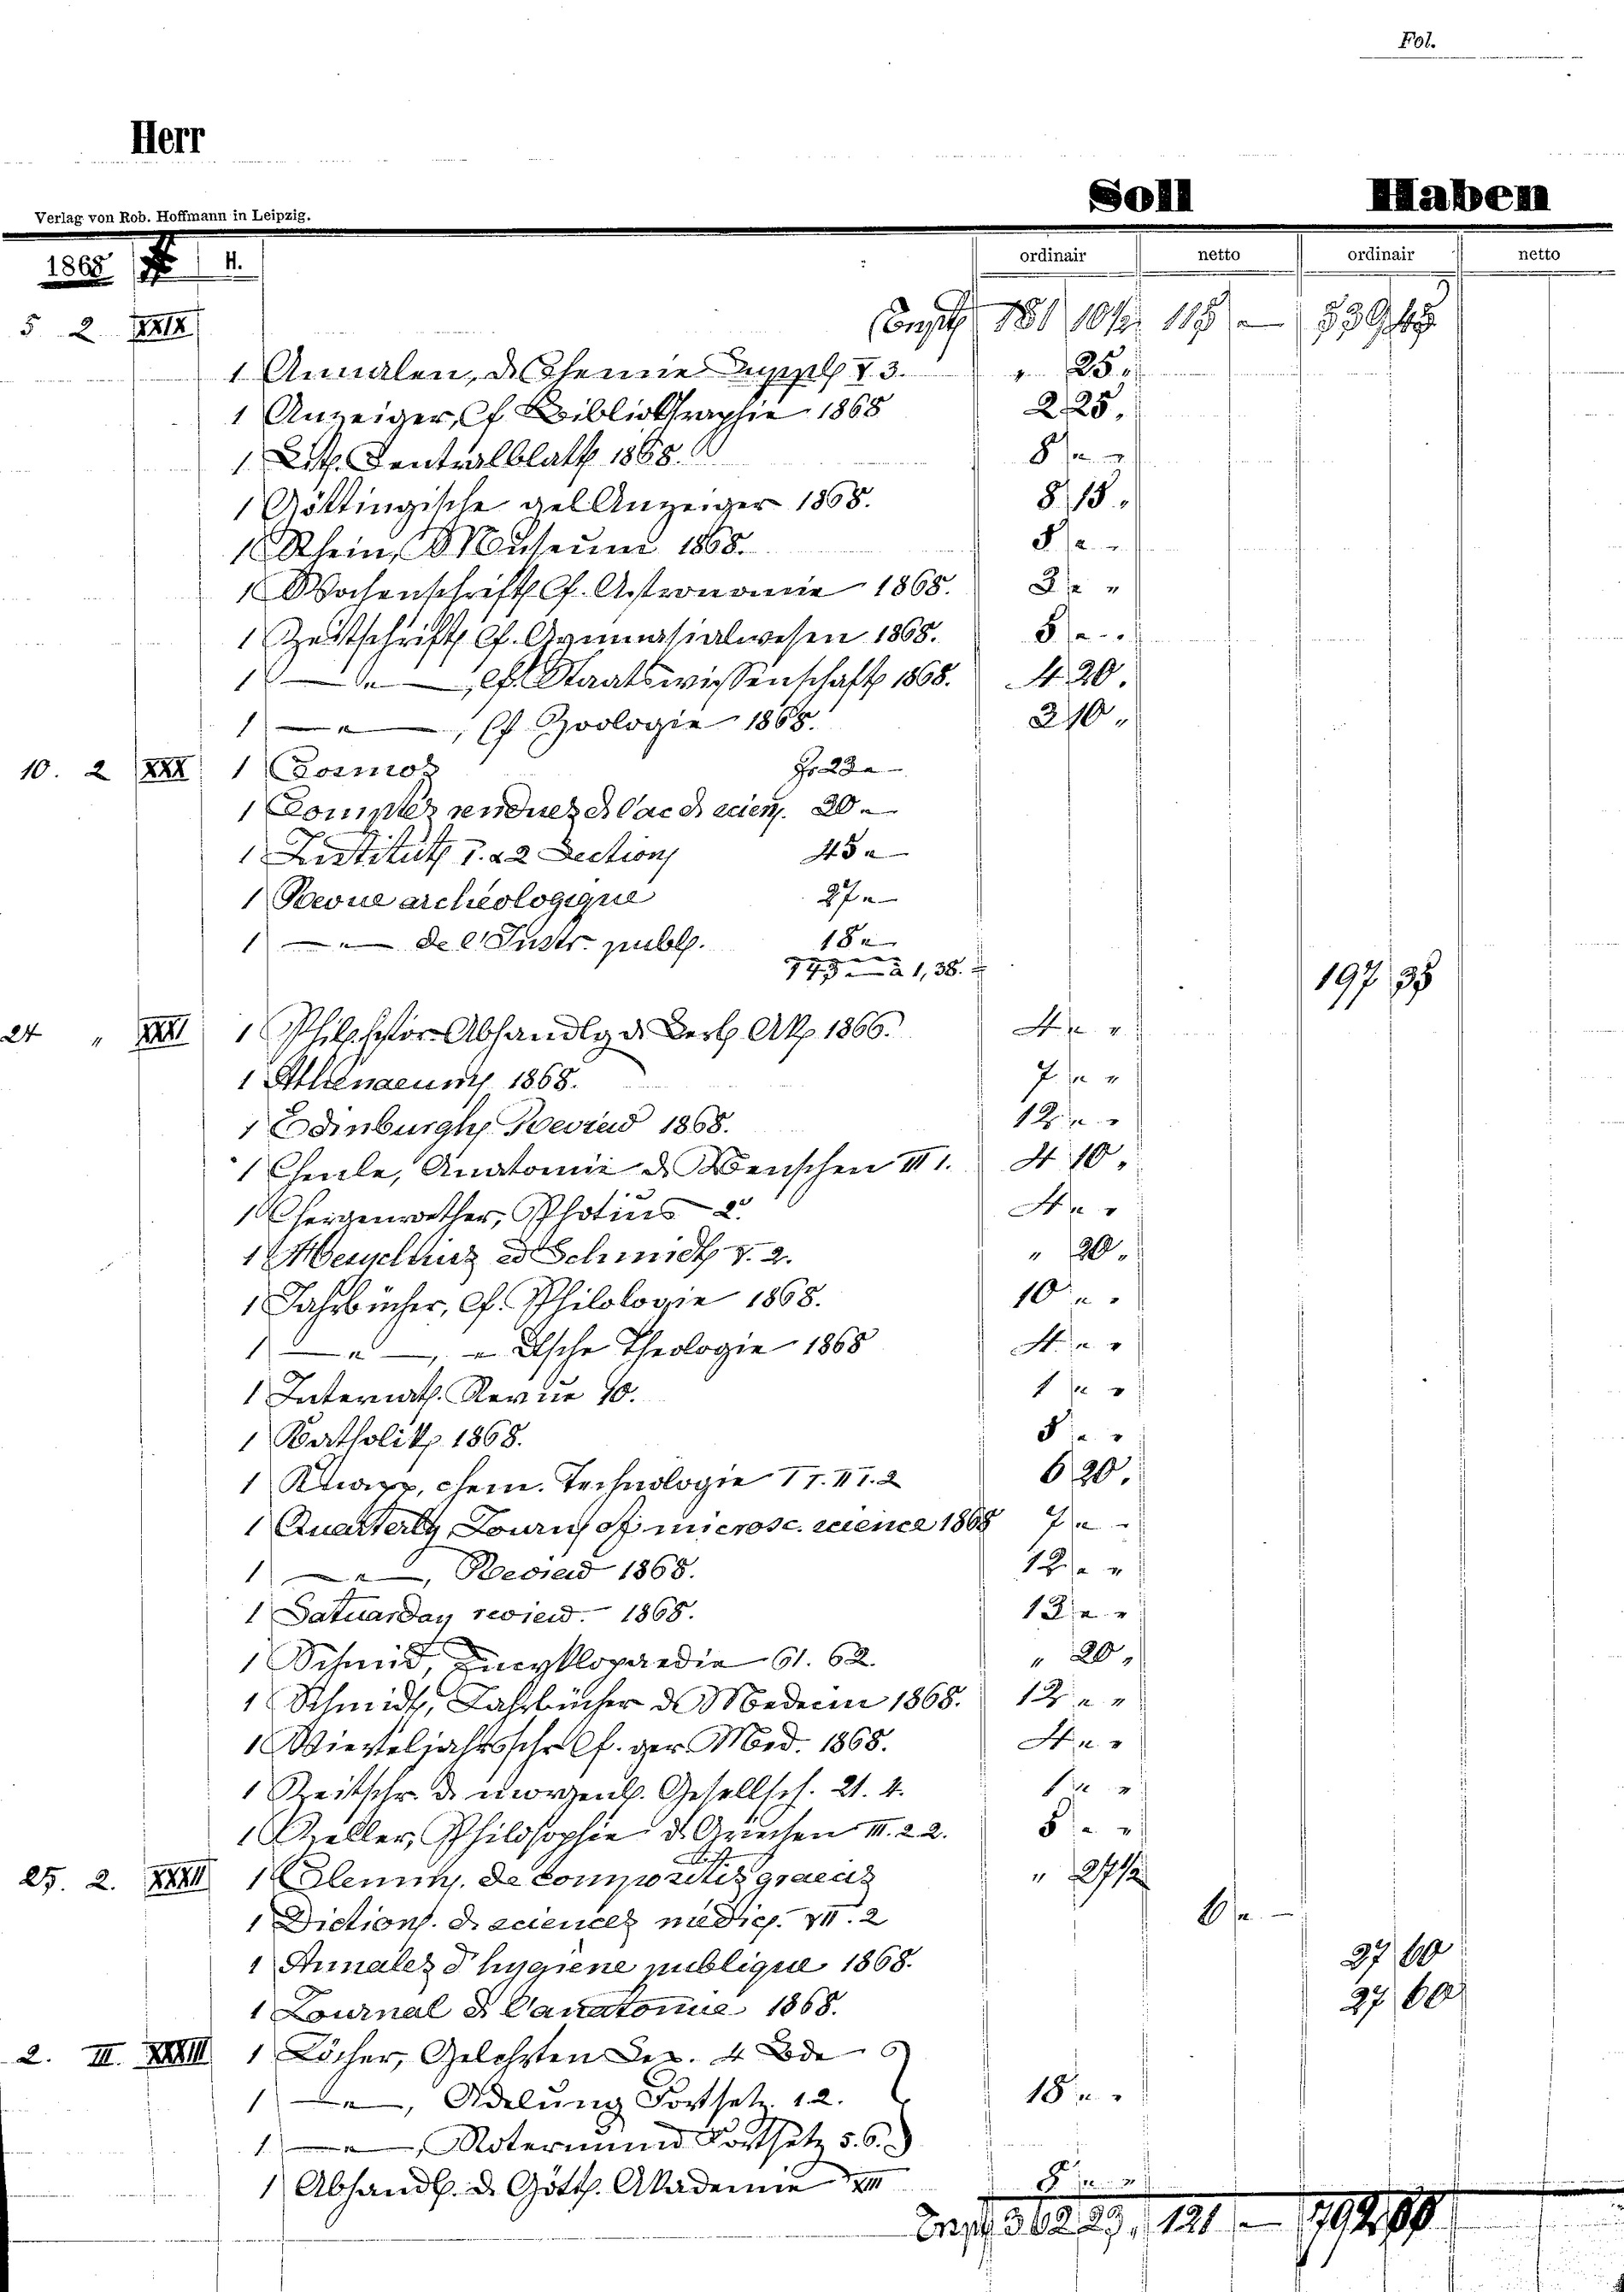 Fol.
Herr
Soll Haben
Verlag von Rob. Hoffmann in Leipzig.
1868 H. ordinair netto ordinair netto
5 2 XXIX 181 10 118 — 539
1 Annalen, d. Chemie Suppl. V. 3. " 25 "
1 Anzeiger, f. Bibliographie 1868 2 25 "
1 Lit. Centralblatt 1868. 8 " "
1 Göttingische gel Anzeiger 1868. 8 15 "
1 Rhein, Museum 1868. 5 " "
1 Wochenschrift f. Astronomie 1868. 3 " "
1 Zeitschrift f. Gymnasialwesen 1868. 5 " "
1 — " —, f. Staatswissenschaft 1868. 4 20 "
1 — " —, f Zoologie 1868. 210 "
10. 2 XXX 1 Cosmos Fr 23 " —
1 Comptes rendues d. l'ac d. scien. 20 " —
1 Institut 1. & 2 Section 45 " —
1 Revue archéologique 27 " —
1 — " — de l'Instr. publ. 18 " —
143 " — à 1,38. 197 35
24 " XXXI 1 Phil. histor. Abhandlg d. Berl. Ak 1866. 4 " "
1 Athenaeum 1868. 7 " "
1 Edinburgh Review 1868. 12 " "
1 Henle, Anatomie d. Menschen III 1. 4 10 "
1 Hergenroether, Photius 2. 4 " "
1 ed Schmidt V. 2. " 20 "
1 Jahrbücher, f. Philologie 1868. 10 " "
1 — " —, " dtsche Theologie 1868 4 " "
1 Internat. Revue 10. 1 " "
1 Katholik 1868. 5 " "
1 Knapp, chem. Technologie I 1. II 1. 2 6 20 "
1 Quarterly Journ of microsc. science 1868 7 " "
1 — " —, Review 1868. 12 " "
1 Satuarday review. 1868. 13 " "
1 Schmid, Encyklopaedie 61. 62. " 20 "
1 Schmidt, Jahrbücher d. Medecin 1868. 12 " "
1 Vierteljahrsschr f. ger. Med. 1868. 4 " "
1 Zeitschr. d. morgenl. Gesellsch. 21. 4. 1 " "
1 Zeller, Philosophie d. Griechen III. 2 2. 5 " "
25. 2. XXXII 1 Clemm. de compositis graecis " 27½
1 Diction. d. sciences médic. VII. 2 6 " —
1 Annales d'hygiene publique 1868. 27 60
1 Journal d. l'anatomie 1868. 27 60
2. III. XXXIII 1 Jöcher, Gelehrten Lex. 4 Bde
1 — " —, Adelung Fortsetz. 1.2. 18 " "
1 — " —, Rotermund Fortsetz 5.6.
1 Abhandl. d. Gött. Akademie XIII 8 " "
362 29 " 121 — 792,90